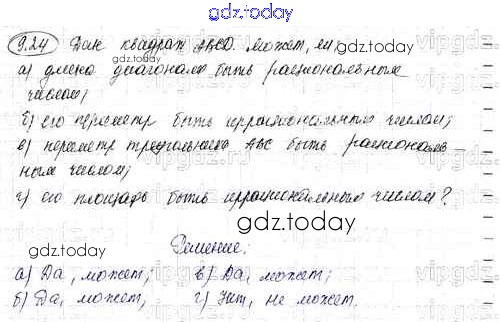 gdz.today
9.24 Дан квадрат ABCD. может, ли:
а) длина диагонали быть рациональным
числом;
б) его периметр быть иррациональным числом;
в) периметр треугольника ABC быть рациональ-
ным числом;
г) его площадь быть иррациональным числом?
gdz.today
Решение:
а) Да, может; в) Да, может;
б) Да, может; г) Нет, не может.
gdz.today